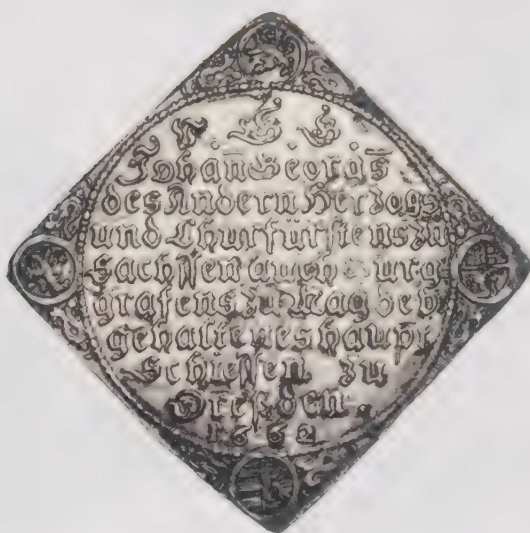 Johan̄ Georgs
des Andern Herzogs
und Churfürstens zu
Sachssen auch Burg
grafens zu Magdeb
gehaltenes haupt
Schiessen zu
Dreßden.